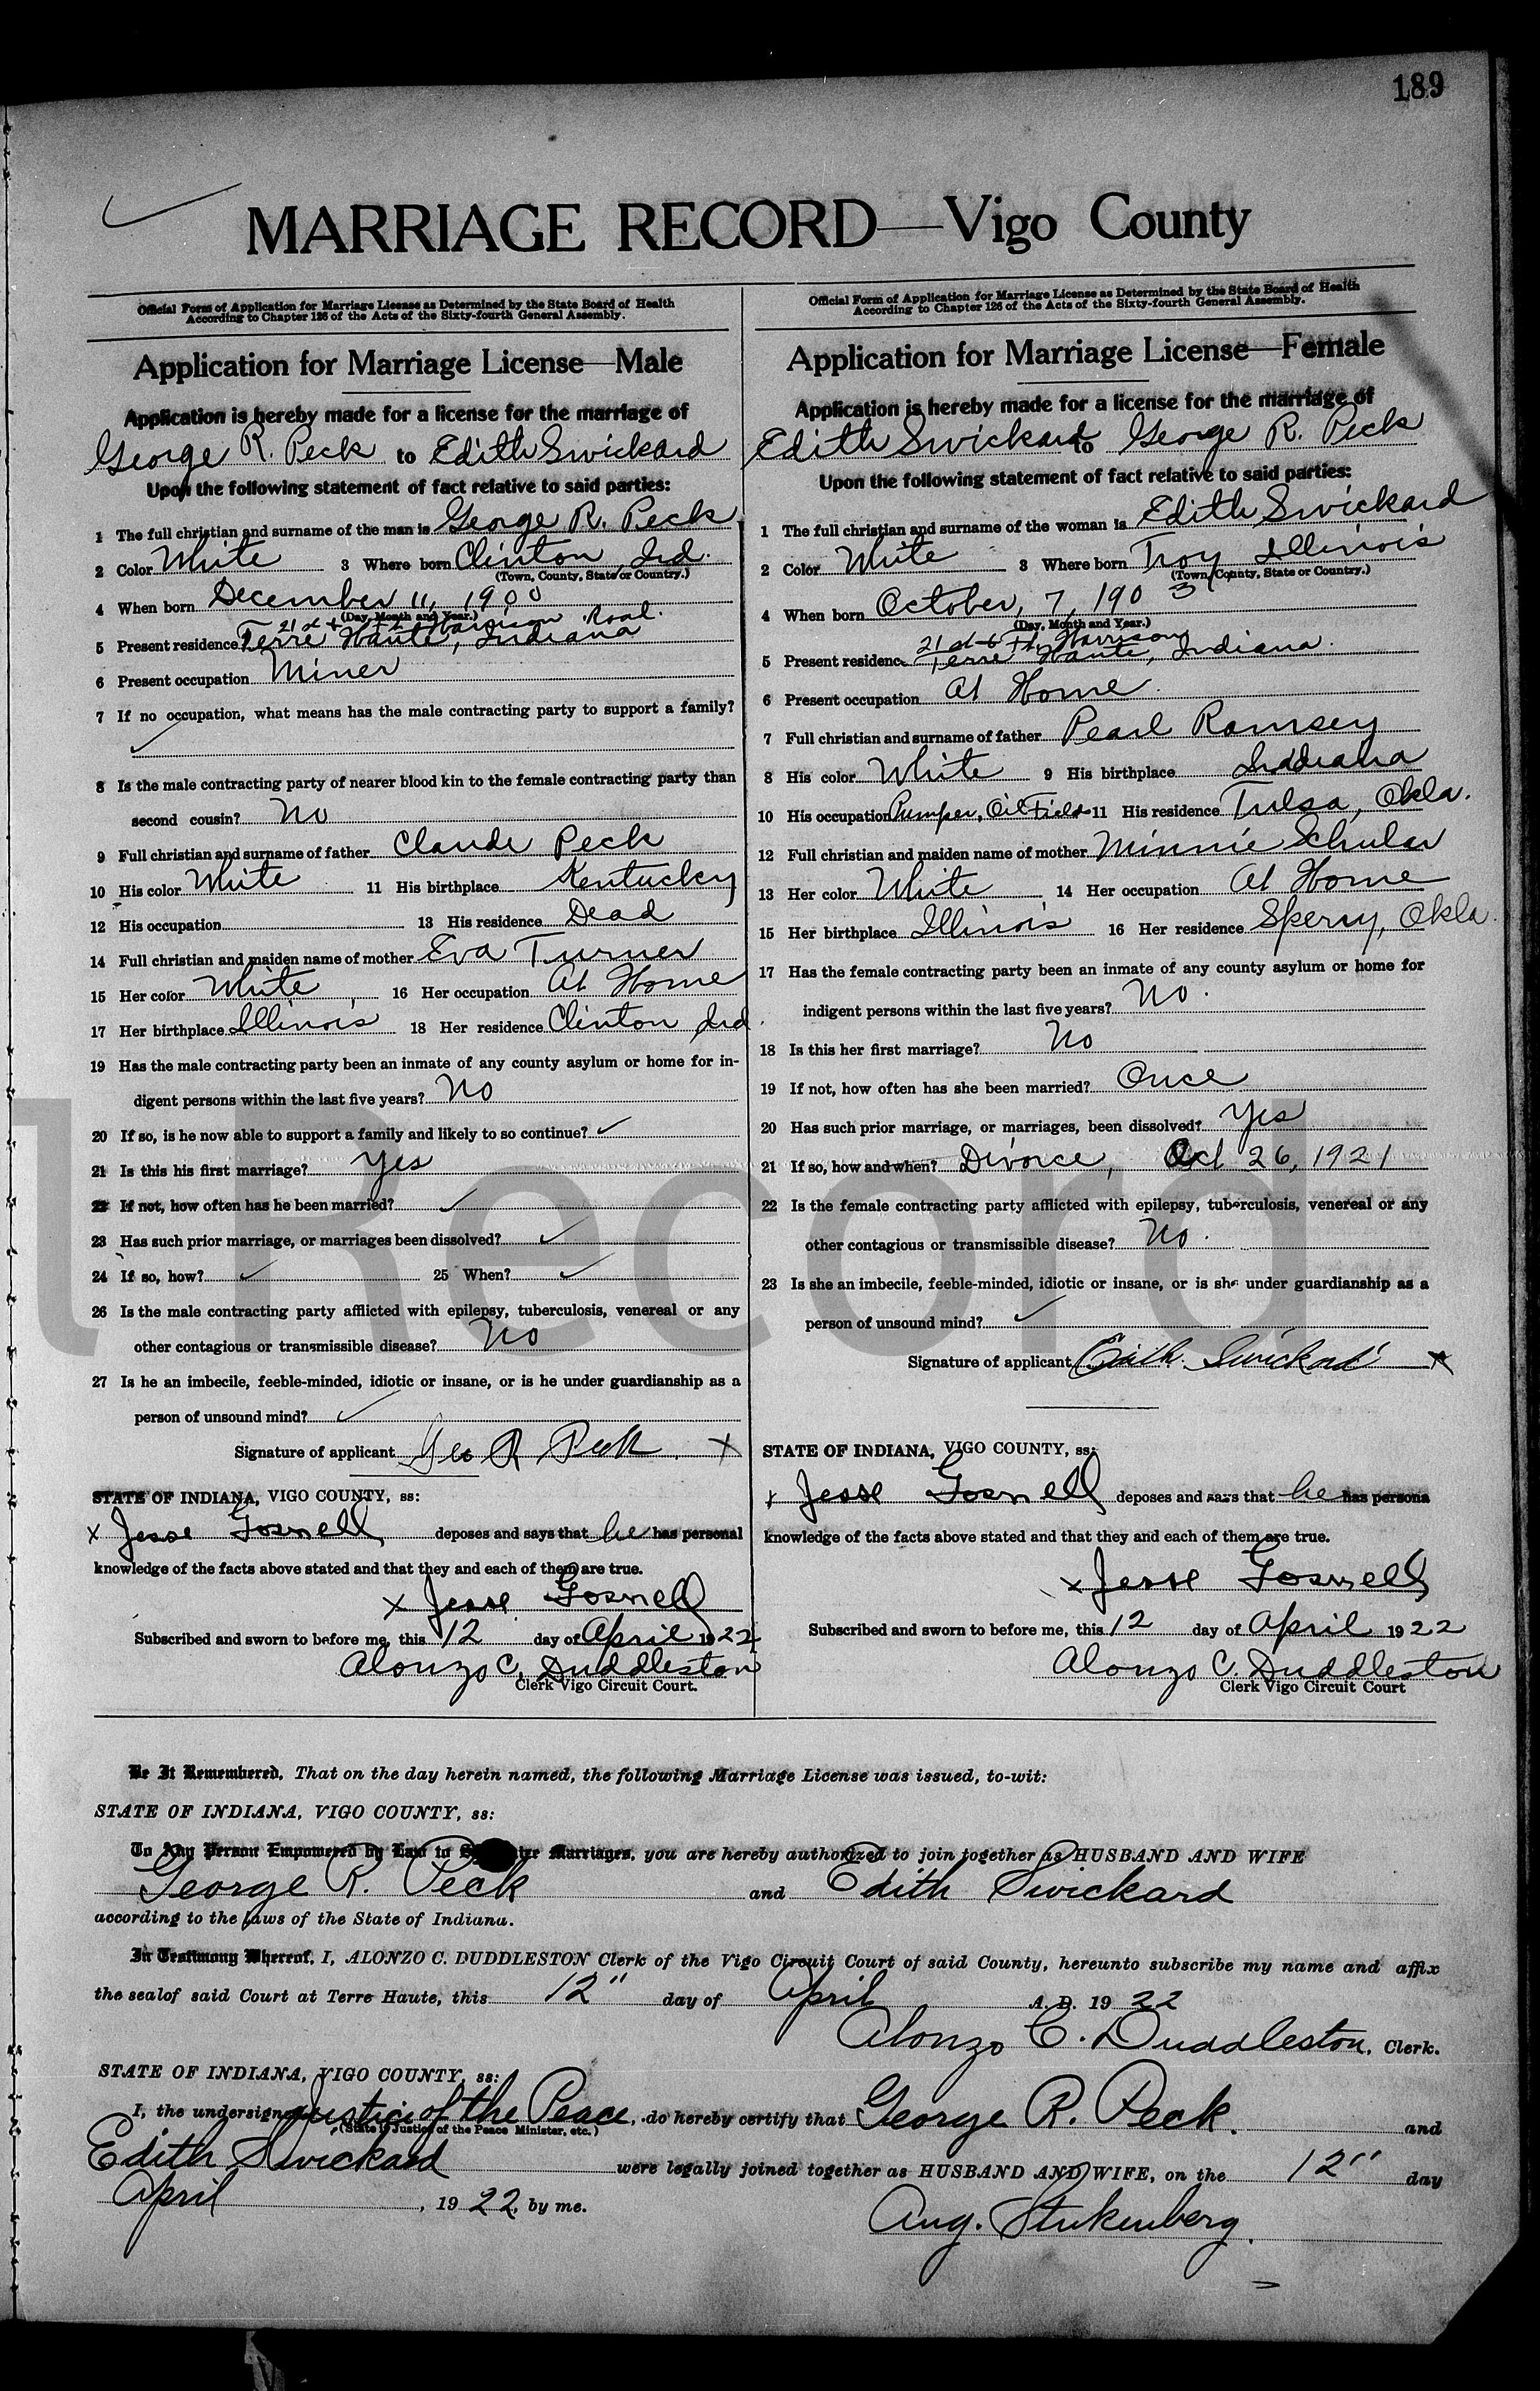 189
MARRIAGE RECORD—Vigo County
Official Form of Application for Marriage License as Determined by the State Board of Health
According to Chapter 126 of the Acts of the Sixty-fourth General Assembly.
Application for Marriage License—Male
Application is hereby made for a license for the marriage of
George R. Peck to Edith Swickard
Upon the following statement of fact relative to said parties:
1 The full christian and surname of the man is George R. Peck
2 Color White 3 Where born Clinton, Ind.
(Town, County, State or Country.)
4 When born December 11, 1900
(Day, Month and Year.)
21st & Ft Harrison Road.
5 Present residence Terre Haute, Indiana
6 Present occupation Miner
7 If no occupation, what means has the male contracting party to support a family?
✓
8 Is the male contracting party of nearer blood kin to the female contracting party than
second cousin? No
9 Full christian and surname of father Claude Peck
10 His color White 11 His birthplace Kentucky
12 His occupation 13 His residence Dead
14 Full christian and maiden name of mother Eva Turner
15 Her color White 16 Her occupation At Home
17 Her birthplace Illinois 18 Her residence Clinton Ind.
19 Has the male contracting party been an inmate of any county asylum or home for in-
digent persons within the last five years? No
20 If so, is he now able to support a family and likely to so continue? ✓
21 Is this his first marriage? Yes
22 If not, how often has he been married? ✓
23 Has such prior marriage, or marriages been dissolved? ✓
24 If so, how? ✓ 25 When? ✓
26 Is the male contracting party afflicted with epilepsy, tuberculosis, venereal or any
other contagious or transmissible disease? No
27 Is he an imbecile, feeble-minded, idiotic or insane, or is he under guardianship as a
person of unsound mind? ✓
Signature of applicant Geo R Peck x
STATE OF INDIANA, VIGO COUNTY, ss:
x Jesse Gosnell deposes and says that he has personal
knowledge of the facts above stated and that they and each of them are true.
x Jesse Gosnell
Subscribed and sworn to before me, this 12 day of April 1922
Alonzo C. Duddleston
Clerk Vigo Circuit Court.
Official Form of Application for Marriage License as Determined by the State Board of Health
According to Chapter 126 of the Acts of the Sixty-fourth General Assembly.
Application for Marriage License—Female
Application is hereby made for a license for the marriage of
Edith Swickard to George R. Peck
Upon the following statement of fact relative to said parties:
1 The full christian and surname of the woman is Edith Swickard
2 Color White 3 Where born Troy Illinois
(Town, County, State or Country.)
4 When born October, 7, 1903
(Day, Month and Year.)
21st & Ft. Harrison
5 Present residence Terre Haute, Indiana.
6 Present occupation At Home.
7 Full christian and surname of father Pearl Ramsey
8 His color White 9 His birthplace Indiana
10 His occupation Pumper, Oil Field 11 His residence Tulsa, Okla.
12 Full christian and maiden name of mother Minnie Schular
13 Her color White 14 Her occupation At Home
15 Her birthplace Illinois 16 Her residence Sperry, Okla.
17 Has the female contracting party been an inmate of any county asylum or home for
indigent persons within the last five years? No.
18 Is this her first marriage? No
19 If not, how often has she been married? Once
20 Has such prior marriage, or marriages, been dissolved? Yes
21 If so, how and when? Divorce, Oct 26, 1921
22 Is the female contracting party afflicted with epilepsy, tuberculosis, venereal or any
other contagious or transmissible disease? No.
23 Is she an imbecile, feeble-minded, idiotic or insane, or is she under guardianship as a
person of unsound mind? ✓
Signature of applicant Edith Swickard x
STATE OF INDIANA, VIGO COUNTY, ss:
x Jesse Gosnell deposes and says that he has persona
knowledge of the facts above stated and that they and each of them are true.
x Jesse Gosnell
Subscribed and sworn to before me, this 12 day of April 1922
Alonzo C. Duddleston
Clerk Vigo Circuit Court
Be It Remembered, That on the day herein named, the following Marriage License was issued, to-wit:
STATE OF INDIANA, VIGO COUNTY, ss:
To Any Person Empowered by Law to Marriages, you are hereby authorized to join together as HUSBAND AND WIFE
George R. Peck and Edith Swickard
according to the laws of the State of Indiana.
In Testimony Whereof, I, ALONZO C. DUDDLESTON Clerk of the Vigo Circuit Court of said County, hereunto subscribe my name and affix
the seal of said Court at Terre Haute, this 12" day of April A. D. 1922
Alonzo C. Duddleston, Clerk.
STATE OF INDIANA, VIGO COUNTY, ss:
I, the undersigned Justice of the Peace, do hereby certify that George R. Peck. and
(State if Justice of the Peace Minister, etc.)
Edith Swickard were legally joined together as HUSBAND AND WIFE, on the 12" day
April, 1922, by me.
Aug. Stukenberg.
l Record